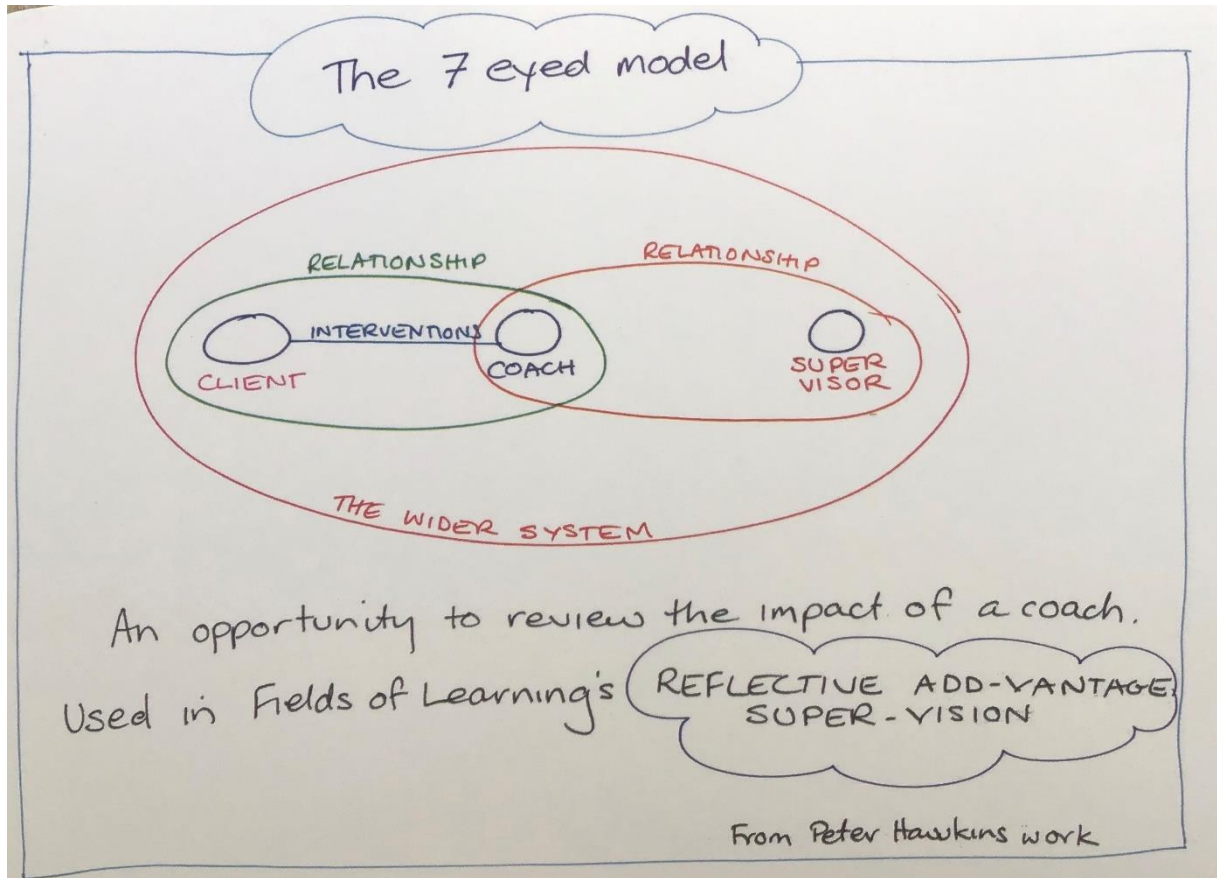 The 7 eyed model
RELATIONSHIP
RELATIONSHIP
INTERVENTIONS
CLIENT
COACH
SUPER
VISOR
THE WIDER SYSTEM
An opportunity to review the impact of a coach.
Used in Fields of Learning's REFLECTIVE ADD-VANTAGE
SUPER-VISION
From Peter Hawkins work